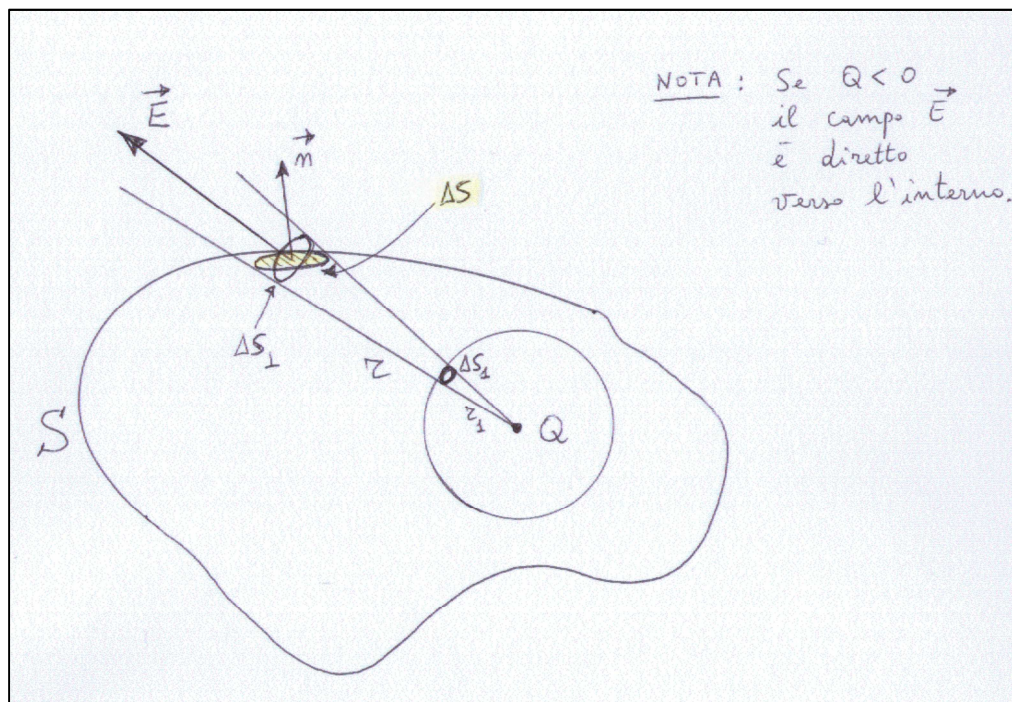 NOTA : Se Q < 0
il campo E⃗
è diretto
verso l'interno.
E⃗
n⃗
ΔS
ΔS⊥
r
ΔS₁
r₁
Q
S